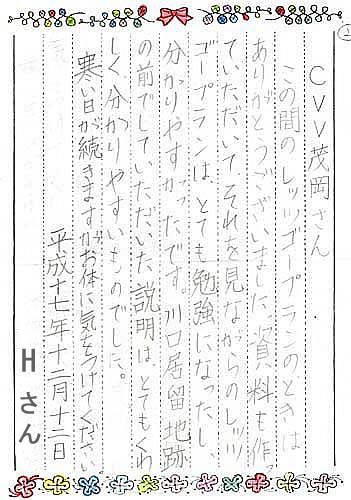 CVV茂岡さん
この間のレッツゴープランのときは
ありがとうございました。資料も作っ
ていただいて、それを見ながらのレッツ
ゴープランは、とても勉強になったし、
分かりやすかったです。川口居留地跡
の前でしていただいた説明は、とてもくわ
しく分かりやすいものでした。
寒い日が続きますがお体に気をつけてください。
平成十七年十二月十二日
Hさん